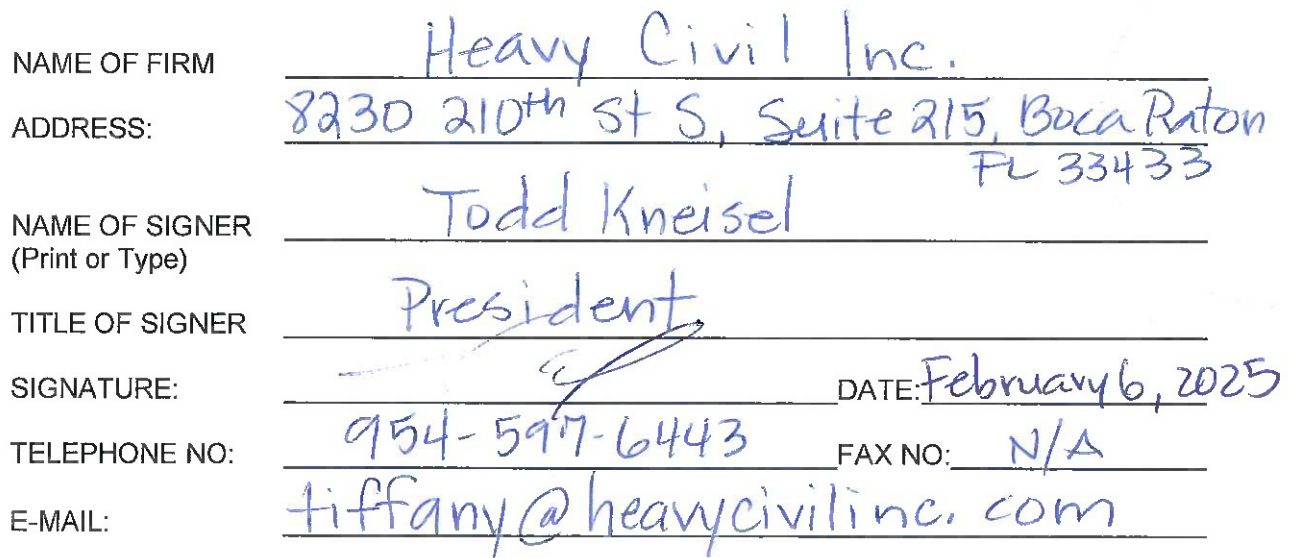 NAME OF FIRM Heavy Civil Inc.
ADDRESS: 8230 210th St S, Suite 215, Boca Raton
FL 33433
NAME OF SIGNER Todd Kneisel
(Print or Type)
TITLE OF SIGNER President
SIGNATURE: DATE: February 6, 2025
TELEPHONE NO: 954-597-6443 FAX NO: N/A
E-MAIL: tiffany@heavycivilinc.com